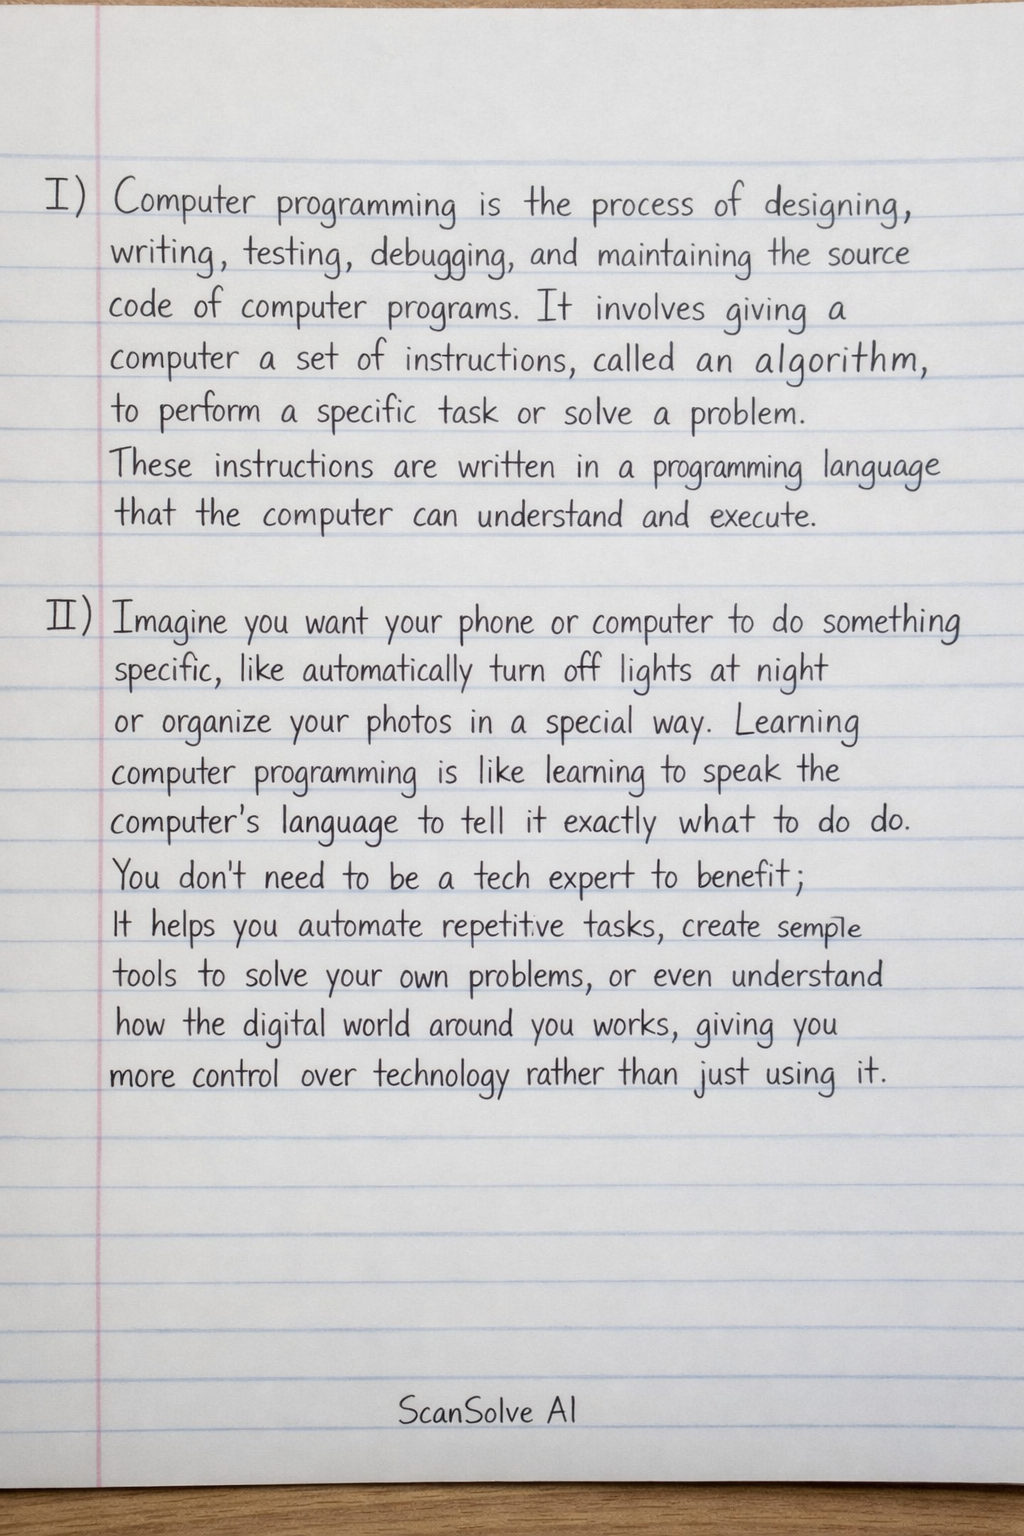 I) Computer programming is the process of designing,
writing, testing, debugging, and maintaining the source
code of computer programs. It involves giving a
computer a set of instructions, called an algorithm,
to perform a specific task or solve a problem.
These instructions are written in a programming language
that the computer can understand and execute.
II) Imagine you want your phone or computer to do something
specific, like automatically turn off lights at night
or organize your photos in a special way. Learning
computer programming is like learning to speak the
computer's language to tell it exactly what to do do.
You don't need to be a tech expert to benefit;
It helps you automate repetitive tasks, create semple
tools to solve your own problems, or even understand
how the digital world around you works, giving you
more control over technology rather than just using it.
ScanSolve AI